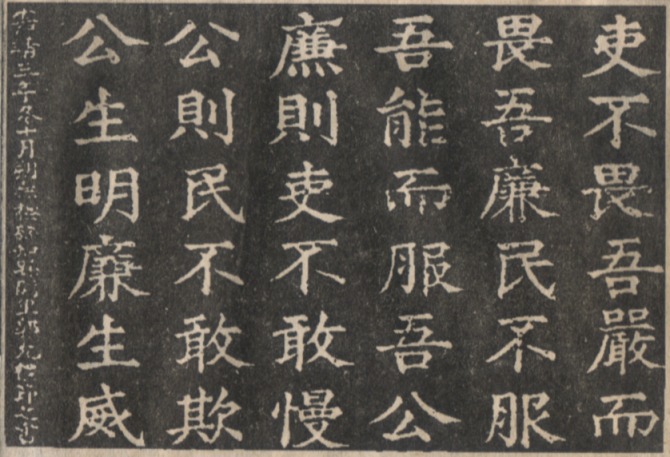 吏不畏吾嚴而
畏吾廉民不服
吾能而服吾公
廉則吏不敢慢
公則民不敢欺
公生明廉生威